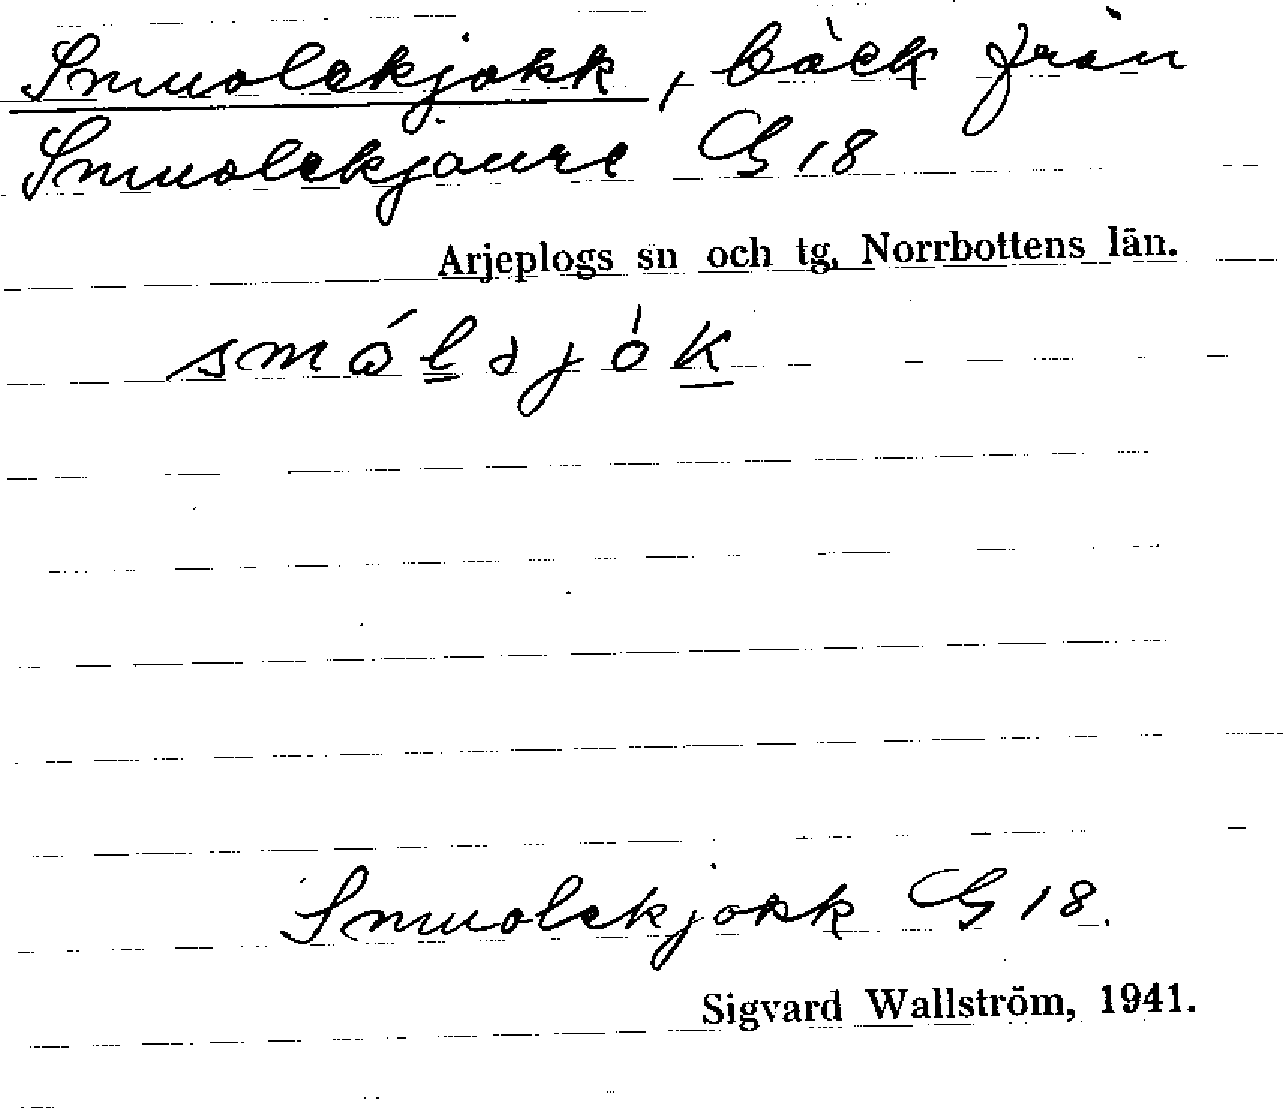 Smuolekjokk, bäck från
Smuolekjaure G 18
Arjeplogs sn och tg, Norrbottens län.
smǻlǝjòk
Smuolekjokk G 18.
Sigvard Wallström, 1941.